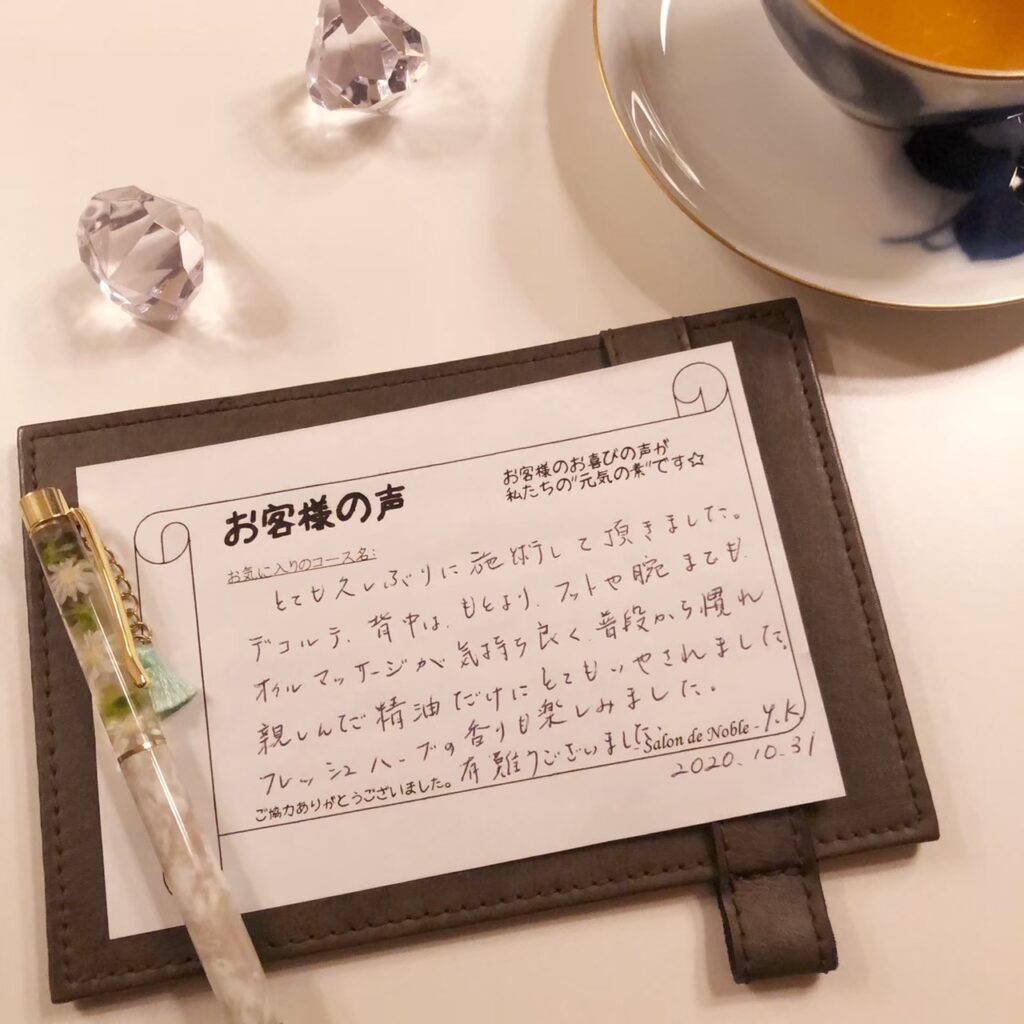 お客様の声
お客様のお喜びの声が
私たちの"元気の素"です☆
お気に入りのコース名:
とても久しぶりに施術して頂きました。
デコルテ、背中は、もとより、フットや腕までも、
オイルマッサージが気持ち良く、普段から慣れ
親しんだ精油だけにとてもいやされました。
フレッシュハーブの香りも楽しみました。
有難うございました。
ご協力ありがとうございました。
- Salon de Noble -
Y.K
2020.10.31